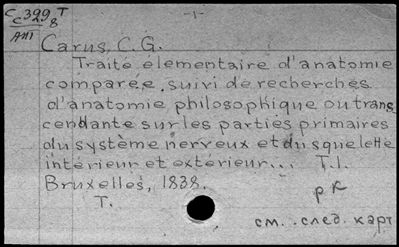 C399 T
C 8
AM
-1-
Carus, C.G.
Traité élementaire d'anatomie
comparée, suivi de recherches
d'anatomie philosophique ou trans
cendante sur les parties primaires
du système nerveux et du squelette
intérieur et extérieur... T.1.
Bruxelles, 1838.
T.
рк
см. след. карт